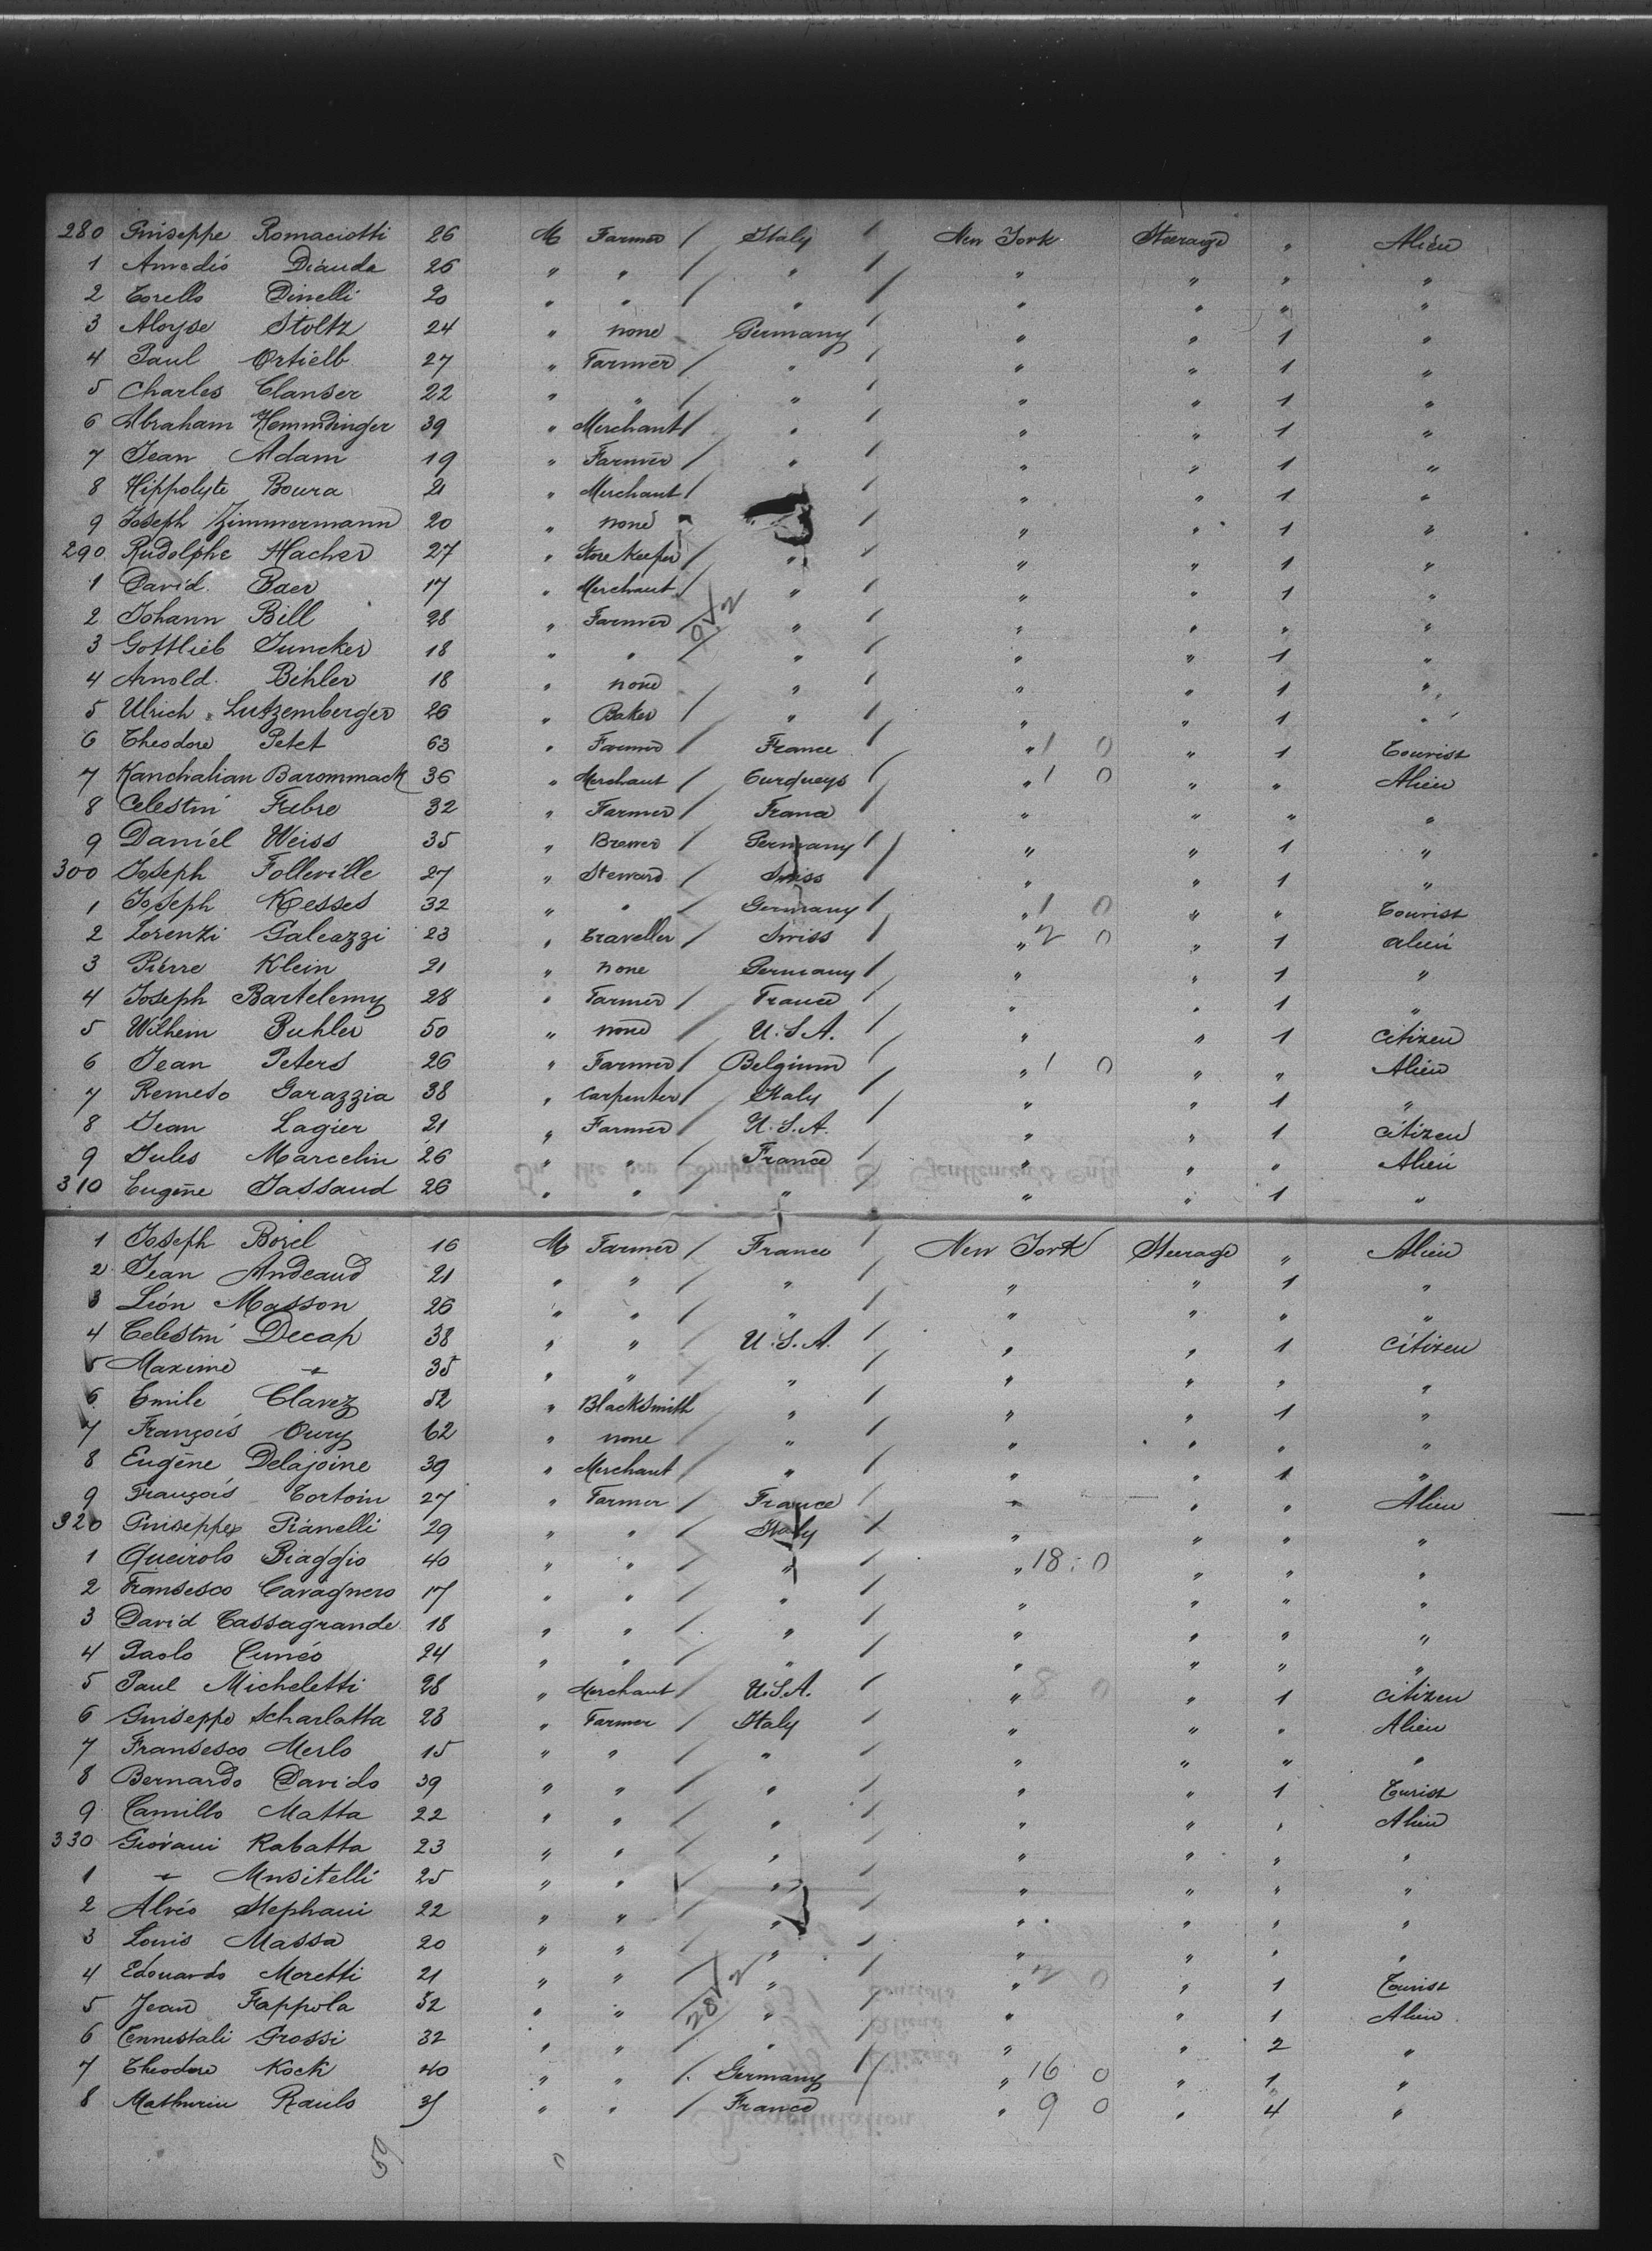 280 Guiseppe Romaciotti 26 M Farmer / Italy / New York Steerage " Alien
1 Amedio Diauda 26 " " / " / " " " "
2 Torello Dinelli 20 " " / " / " " " "
3 Aloyse Stoltz 24 " none Germany / " " 1 "
4 Paul Ortielb 27 " Farmer / " / " " 1 "
5 Charles Clanser 22 " " / " / " " 1 "
6 Abraham Hemmdinger 39 " Merchant / " / " " 1 "
7 Jean Adam 19 " Farmer / " / " " 1 "
8 Hippolyte Boura 21 " Merchant / / " " 1 "
9 Joseph Zimmermann 20 " none " / " " 1 "
290 Rudolphe Hacher 27 " Store Keeper / " / " " 1 "
1 David Baer 17 " Merchant / " / " " 1 "
2 Johann Bill 28 " Farmer / " / " " " "
3 Gottlieb Juncker 18 " " / " / " " 1 "
4 Arnold Bihler 18 " none " / " " 1 "
5 Ulrich Lutzemberger 26 " Baker / " / " " 1 "
6 Theodore Petet 63 " Farmer / France / " 1 0 " 1 Tourist
7 Kanchalian Barommack 36 " Merchant / Turqueys / " 1 0 " " Alien
8 Celestin Fabre 32 " Farmer / France / " " " "
9 Daniel Weiss 35 " Brewer / Germany / " " 1 "
300 Joseph Folleville 27 " Steward / Swiss / " " 1 "
1 Joseph Kesses 32 " " Germany / " 1 0 " " Tourist
2 Lorenzi Galeazzi 23 " Traveller / Swiss / " 2 0 " 1 alien
3 Pierre Klein 21 " none Germany / " " 1 "
4 Joseph Bartelemy 28 " Farmer / France / " " 1 "
5 Wilhem Buhler 50 " none / U.S.A. / " " 1 citizen
6 Jean Peters 26 " Farmer / Belgium / " 1 0 " " Alien
7 Remeso Garazzia 38 " Carpenter / Italy / " " 1 "
8 Jean Lagier 21 " Farmer / U.S.A. / " " 1 citizen
9 Jules Marcelin 26 " " / France / " " " Alien
310 Eugène Jassaud 26 " " / " / " " 1 "
1 Joseph Borel 16 M Farmer / France / New York Steerage " Alien
2 Jean Andeaud 21 " " / " / " " 1 "
3 Léon Masson 26 " " / " / " " " "
4 Celestin Decap 38 " " / U.S.A. / " " 1 citizen
5 Maxime " 35 " " / " / " " " "
6 Emile Clavez 52 " Blacksmith " / " " 1 "
7 François Oury 62 " none / " / " " " "
8 Eugène Delajoine 39 " Merchant / " / " " 1 "
9 François Tortoin 27 " Farmer / France / " " " Alien
320 Guiseppe Pianelli 29 " " / Italy / " " " "
1 Queirolo Biaggio 40 " " / " / " 18 : 0 " " "
2 Fransesco Cavagnero 17 " " / " / " " " "
3 David Cassagrande 18 " " / " / " " " "
4 Paolo Cunéo 24 " " / " / " " " "
5 Paul Micheletti 28 " Merchant / U.S.A. / " 8 0 " 1 citizen
6 Guiseppe Scharlatta 23 " Farmer / Italy / " " " Alien
7 Fransesco Merlo 15 " " / " / " " " "
8 Bernardo Davido 39 " " / " / " " 1 Turist
9 Camillo Matta 22 " " / " / " " " Alien
330 Giovani Rabatta 23 " " / " / " " " "
1 " Musitelli 25 " " / " / " " " "
2 Alvio Stephani 22 " " / " / " " " "
3 Louis Massa 20 " " / " / " " " "
4 Edouardo Moretti 21 " " / " / " 2 0 " 1 Tourist
5 Jean Fappola 32 " " / " / " " 1 Alien
6 Cennestali Grossi 32 " " / " / " " 2 "
7 Theodore Koch 40 " " / Germany / " 16 0 " 1 "
8 Mathurin Raulo 31 " " / France / " 9 0 " 4 "
59 0